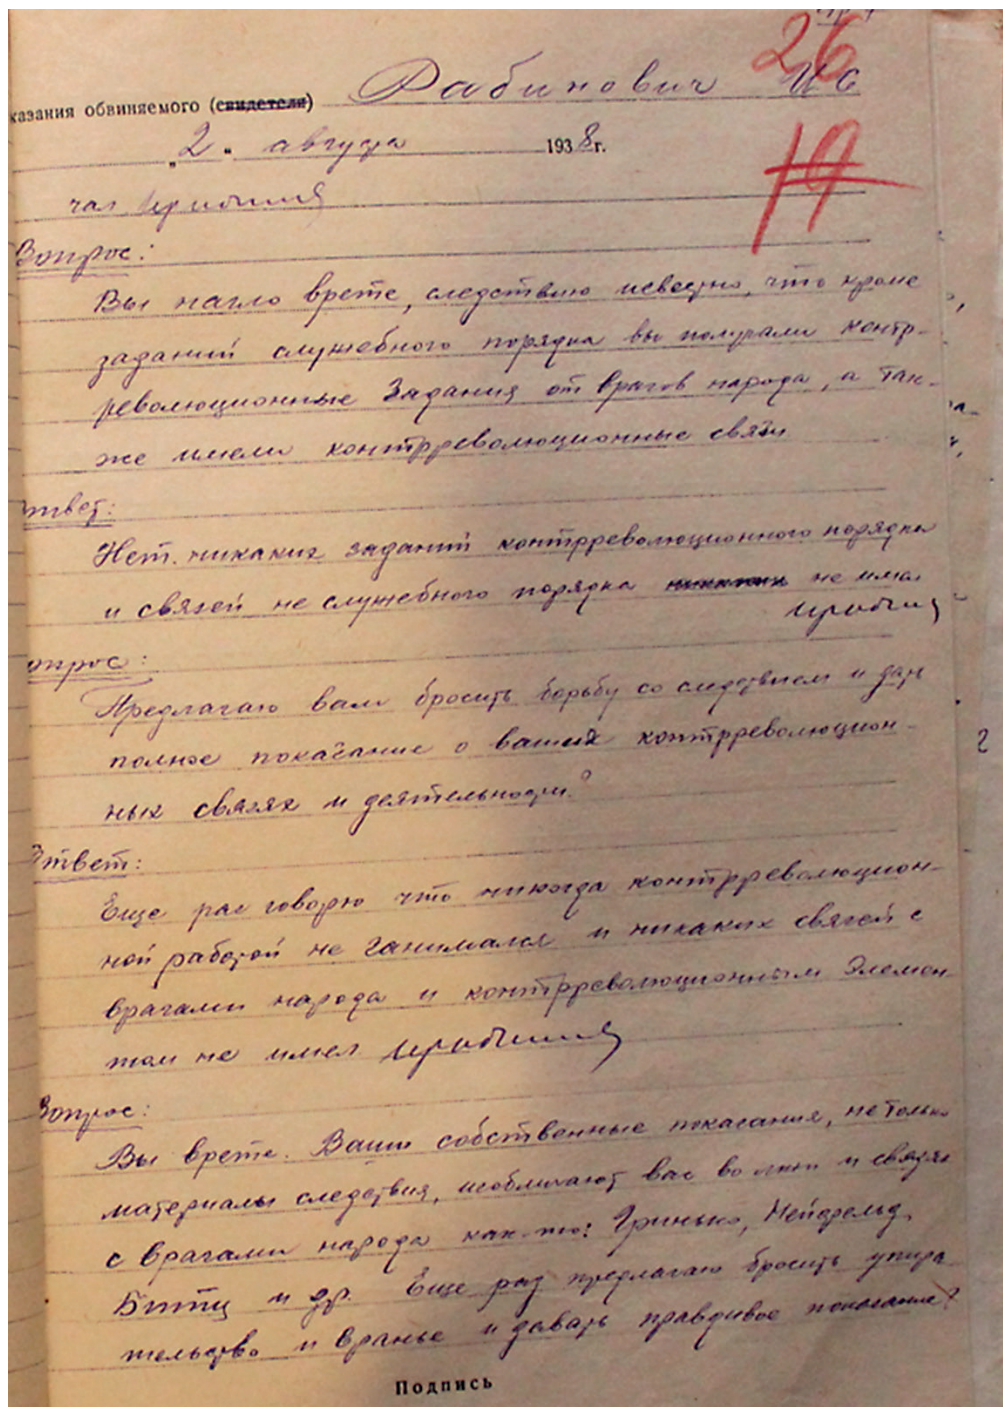 26
казания обвиняемого (свидетеля) Рабинович И С
19
„2“ августа 1938 г.
Вопрос:
Вы нагло врете, следствию исвестно, что кроме
заданий служебного порядка вы получали контр-
революционные Задания от врагов народа, а так-
же имели контрреволюционные связи
Ответ:
Нет. никаких заданий контрреволюционного порядка
и связей не служебного порядка никаких не имел
Вопрос:
Предлагаю вам бросить борьбу со следствием и дать
полное показание о ваших контрреволюцион-
ных связях и деятельности.?
Ответ:
Еще рас говорю что никогда контрреволюцион-
ной работой не занимался и никаких связей с
врагами народа и контрреволюционным Элемен-
том не имел
Вопрос:
Вы врете. Ваши собственные показания, не только
материалы следствия, изобличают вас во лжи и связях
с врагами народа как-то: Гринько, Нейфельд,
и др. Еще раз предлагаю бросить упира
тельство и вранье и давать правдивое показание?
Подпись